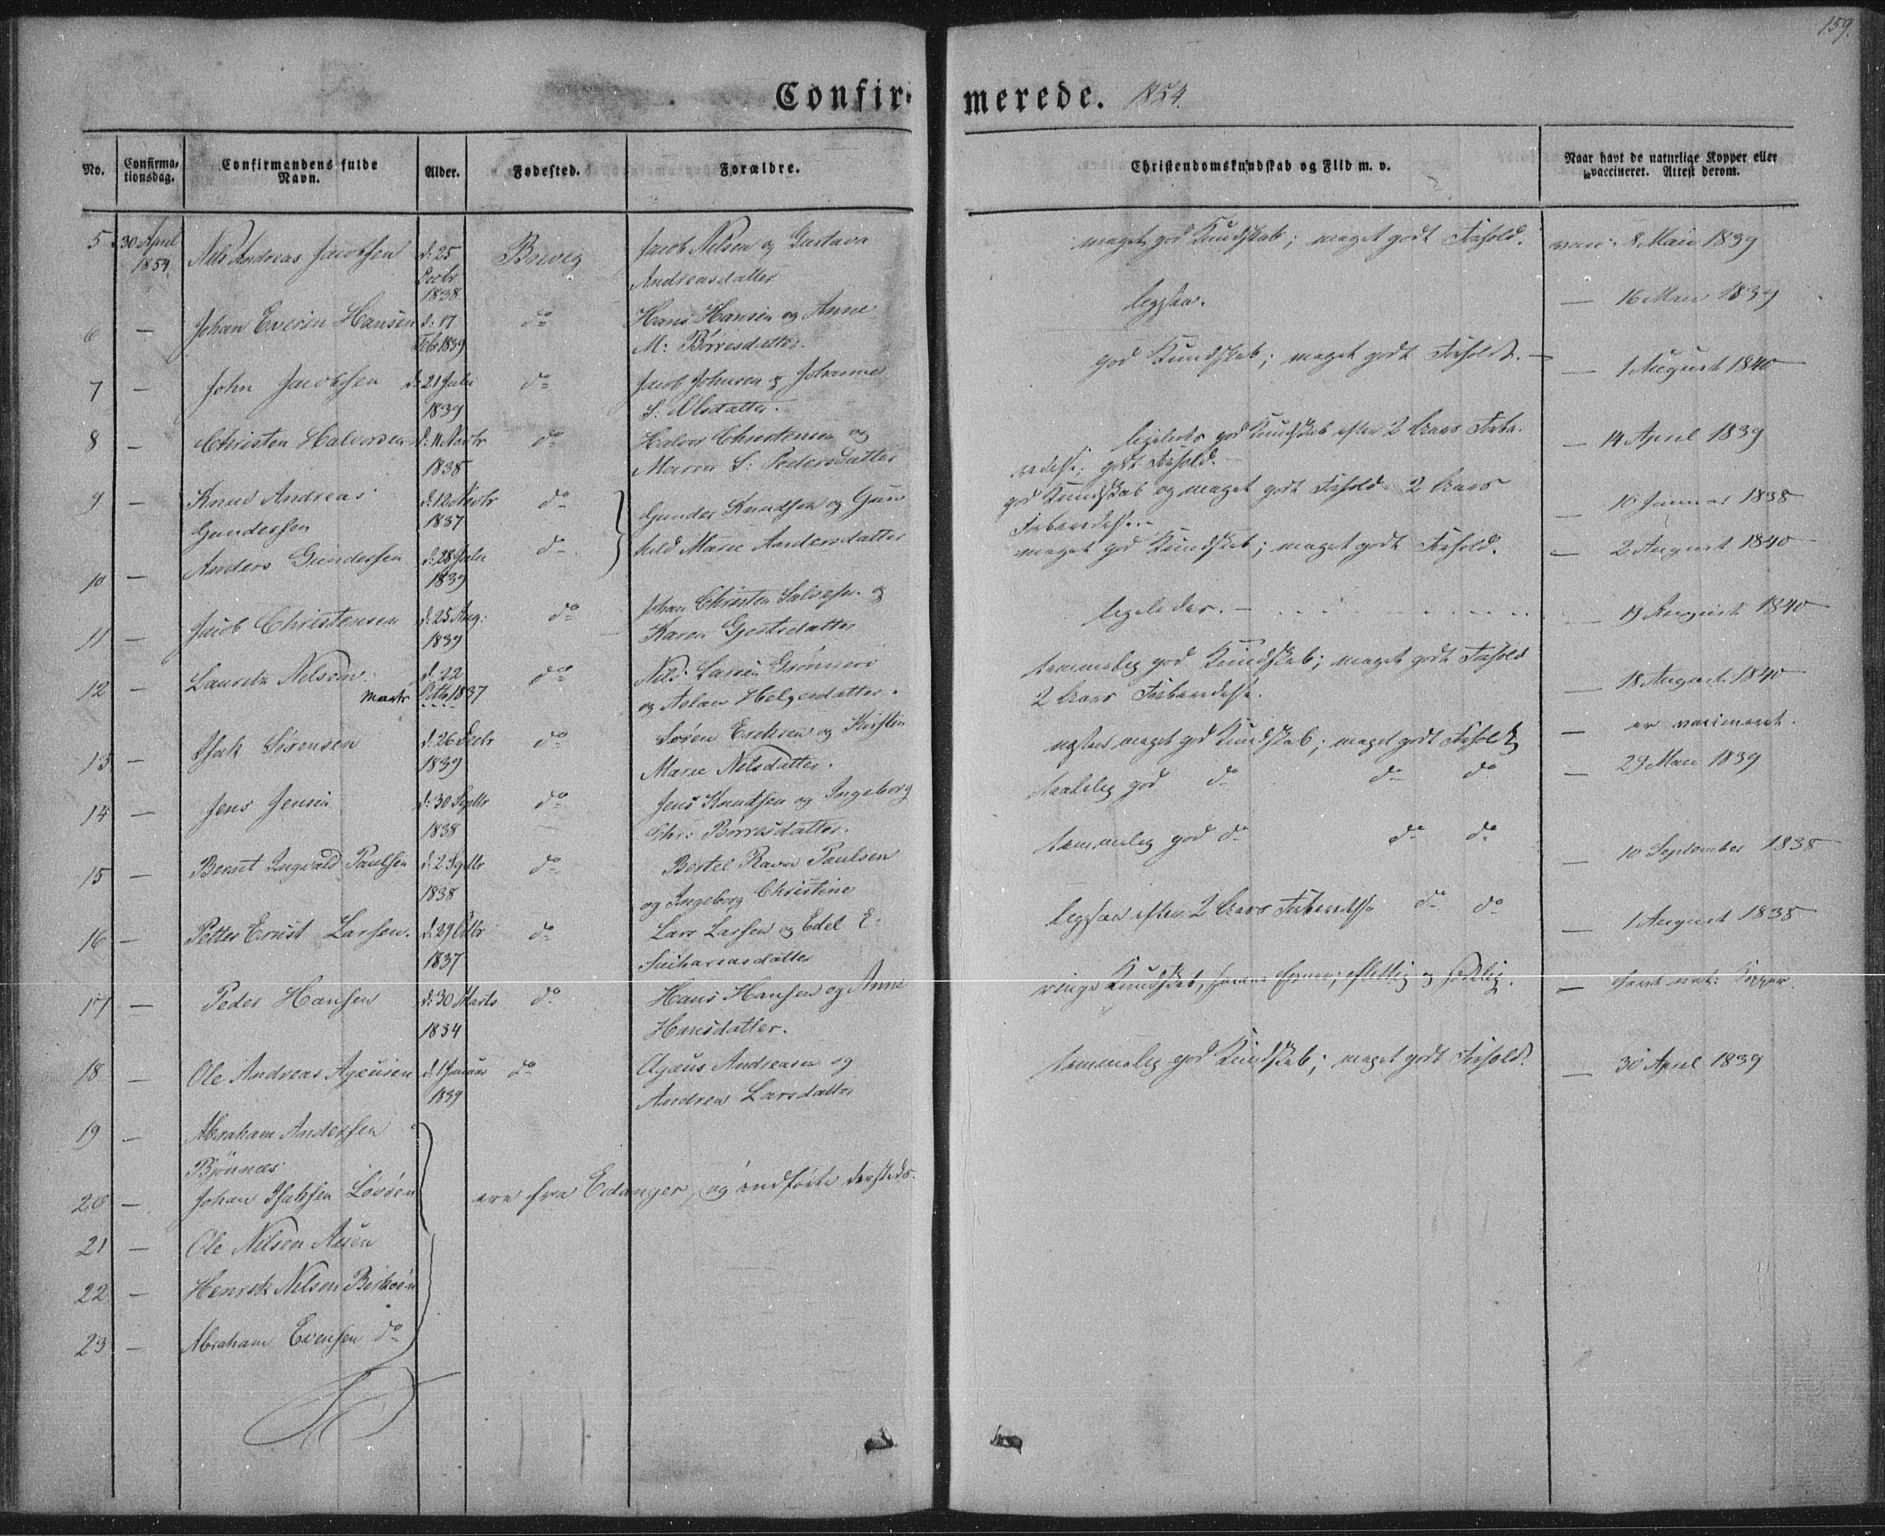 159.
Confirmerede. 1854.
No.
Confirmationsdag.
Confirmandens fulde Navn.
Alder.
Fødested.
Forældre.
Christendomskundskab og Flid m. v.
Naar havt de naturlige Kopper eller vaccineret. Attest derom.
5 30 April 1854 Nils Andreas Jacobsen d: 25 Decbr 1838. Brevig Jacob Nilsen og Gustava Andreasdatter maget god Kundskab; maget godt Forhold. vac: 8 Mai 1839
6 — Johan Hansen d: 17 Febr 1839 do Hans Hansen og Anne M: Børresdatter. ligesaa. — 16 Mai 1839
7 — John Jacobsen d: 21 Juli 1839 do Jacob Johnsen og Johanne S. Olsdatter. god Kundskab; maget godt Forhold. — — 1 August 1840
8 — Christen Halvorsen d: 11 1838 do Halvor Christensen og Maren S: Pedersdatter ligeledes god Kundskab efter 2 Aars Forberedelse; godt Forhold. — 14 April 1839
9 — Knud Andreas Gundersen d: 12 1837 do Gunder Knudsen og Gunhild Marie Andersdatter god Kundskab og maget godt Forhold 2 Aars Forberedelse. — 10 Januar 1838
10 — Anders Gundersen d: 28 Juli 1839 do maget god Kundskab; maget godt Forhold. — 2 August 1840
11 — Jacob Christensen d: 25 Aug: 1839 do Johan Christen og Karen Gjertsdatter ligeledes. — — 19 August 1840
12 — Lauretz Nelson d. 22 Marts Octbr 1837 do Nils Larsen og Helgesdatter. temmelig god Kundskab; maget godt Forhold 2 Aars Forberedelse. — 18 August 1840
13 — Isak Sørensen d: 26 Decbr 1839 do Søren Ereksen og Kirsten Marie Nilsdatter. næsten maget god Kundskab; maget godt Forhold — er vaccineret.
14 — Jens Jensen d: 30 Septbr 1838 do Jens Knudsen og Ingeborg Chr: Børresdatter. taalelig god do do do — 29 Mai 1839
15 — Bernt Ingvald Paulsen d: 2 Septbr 1838 do Bertel Ravn Paulsen og Ingeborg Christine temmelig god do do do — 10 September 1838
16 — Petter Ernst Larsen. d: 29 Octbr 1837 do Lars Larsen og Edel E: Sachariasdatter ligesaa efter 2 Aars Forberedelse do do — 1 August 1838
17 — Peder Hansen d: 30 Marts 1834 do Hans Hansen og Anne Hansdatter. ringe Kundskab, flittig og sædelig. — havt nat: Kopper.
18 — Ole Andreas Ajæusen d. 1 Januar 1839 do Ajæus Andreasen og Andrea Larsdatter temmelig god Kundskab; maget godt Forhold. — 30 April 1839
19 — Abraham Andersen Bjønnes
20 — Johan Isaksen Løvøen ere fra Eidanger, og indførte dersteds.
21 — Ole Nilsen Aasen
22 — Henrik Nilsen
23 — Abraham Evensen do